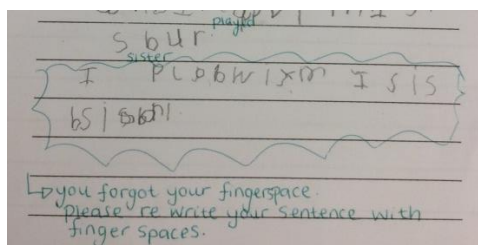 played
s bur
sister
I plobwixm I sis
bsi
↳ you forgot your fingerspace.
Please re write your sentence with
finger spaces.